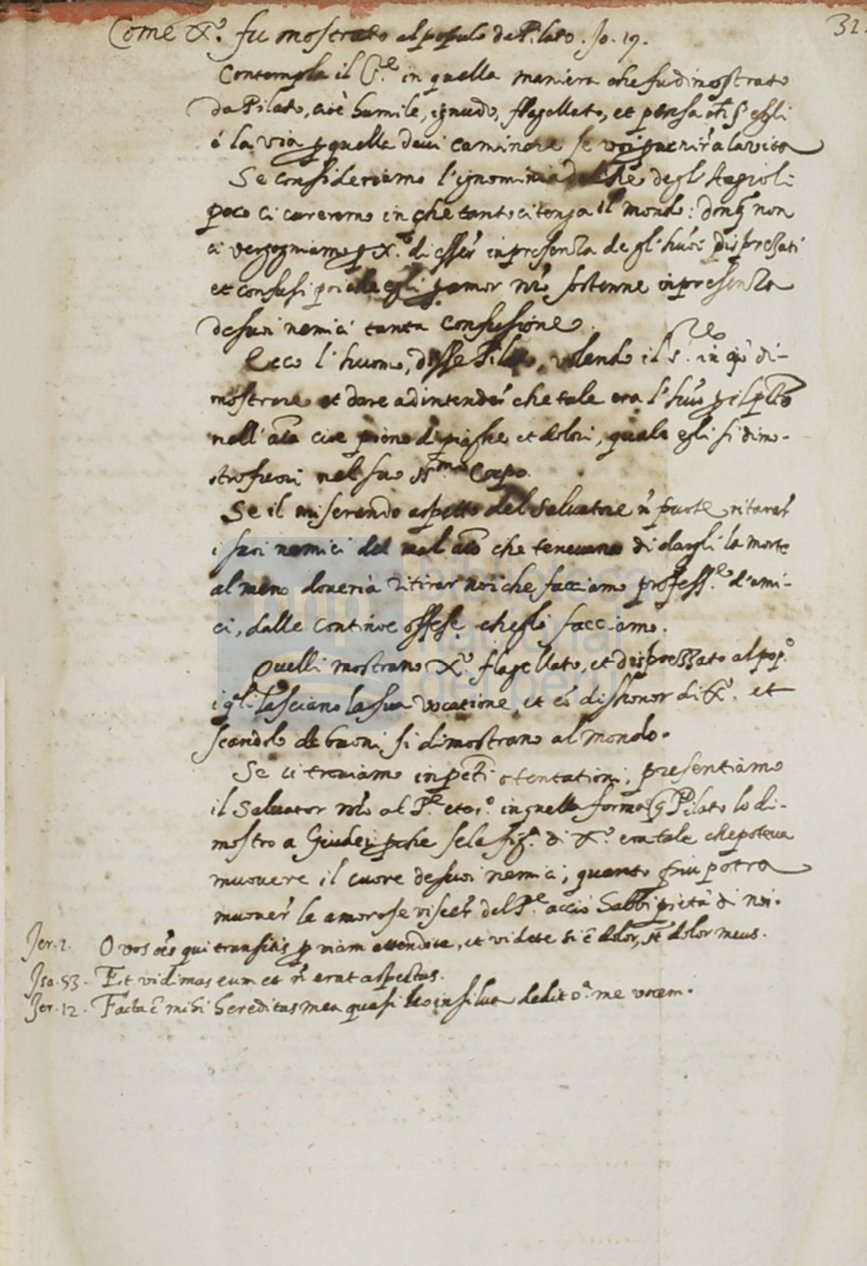 Come X.º fu mostrato al populo da Pilato. Jo. 19.
32
Contempla il S.re in quella maniera che fu dimostrato
Da Pilato, cioè humile, ignudo, flagellato, et pensa ch s'egli
è la via p quella devi caminare se voi pvenir a la vita
Se consideriamo l'ignominia del Re degl'Angioli
poco ci careremo in che tanto ci tenga il mondo: donq non
ci vergogniamo p X.º di esser in presenza de gl'huoi disprezati
et confusi poi che egli p amor nro sostenne in presenza
de suoi nemici tanta confusione.
Ecco l'huomo, disse Pilato, volendo il S.re in qto di-
mostrare et dare ad intender che tale era l'huo p il pcto
nell'aia cioè pieno di piaghe et dolori, quale egli si dimo-
stro fuori nel suo SS.mo Corpo.
Se il miserando aspetto del Salvatore n puote ritirar
i suoi nemici dal mal aio che tenevano di dargli la morte
al meno doveria ritirar noi che facciamo profess.e d'ami-
ci, dalle continoe offese che gli facciamo.
Quelli mostrano X.º flagellato, et disprezzato al pop.º
i qli lasciano la sua vocatione, et co dishonor di X.º et
scandolo de buoni si dimostrano al mondo.
Se ci troviamo in peti o tentationi, presentiamo
il Salvator nro al P.e eter.º in quella forma q Pilato lo di-
mostro a Giudei pche se la fig.a di X.º era tale che poteva
muovere il cuore de suoi nemici, quanto piu potra
muover le amorose viscer del P.e acciò habbi pietà di noi.
Jer. 1. O vos oes qui transitis p viam attendite, et videte si é dolor, st dolor meus.
Isa. 53. Et vidimus eum et n erat aspectus.
Jer. 12. Facta é mihi hereditas mea quasi leo in silva dedit o.a me vocem.
biblioteca
nacional
del perú